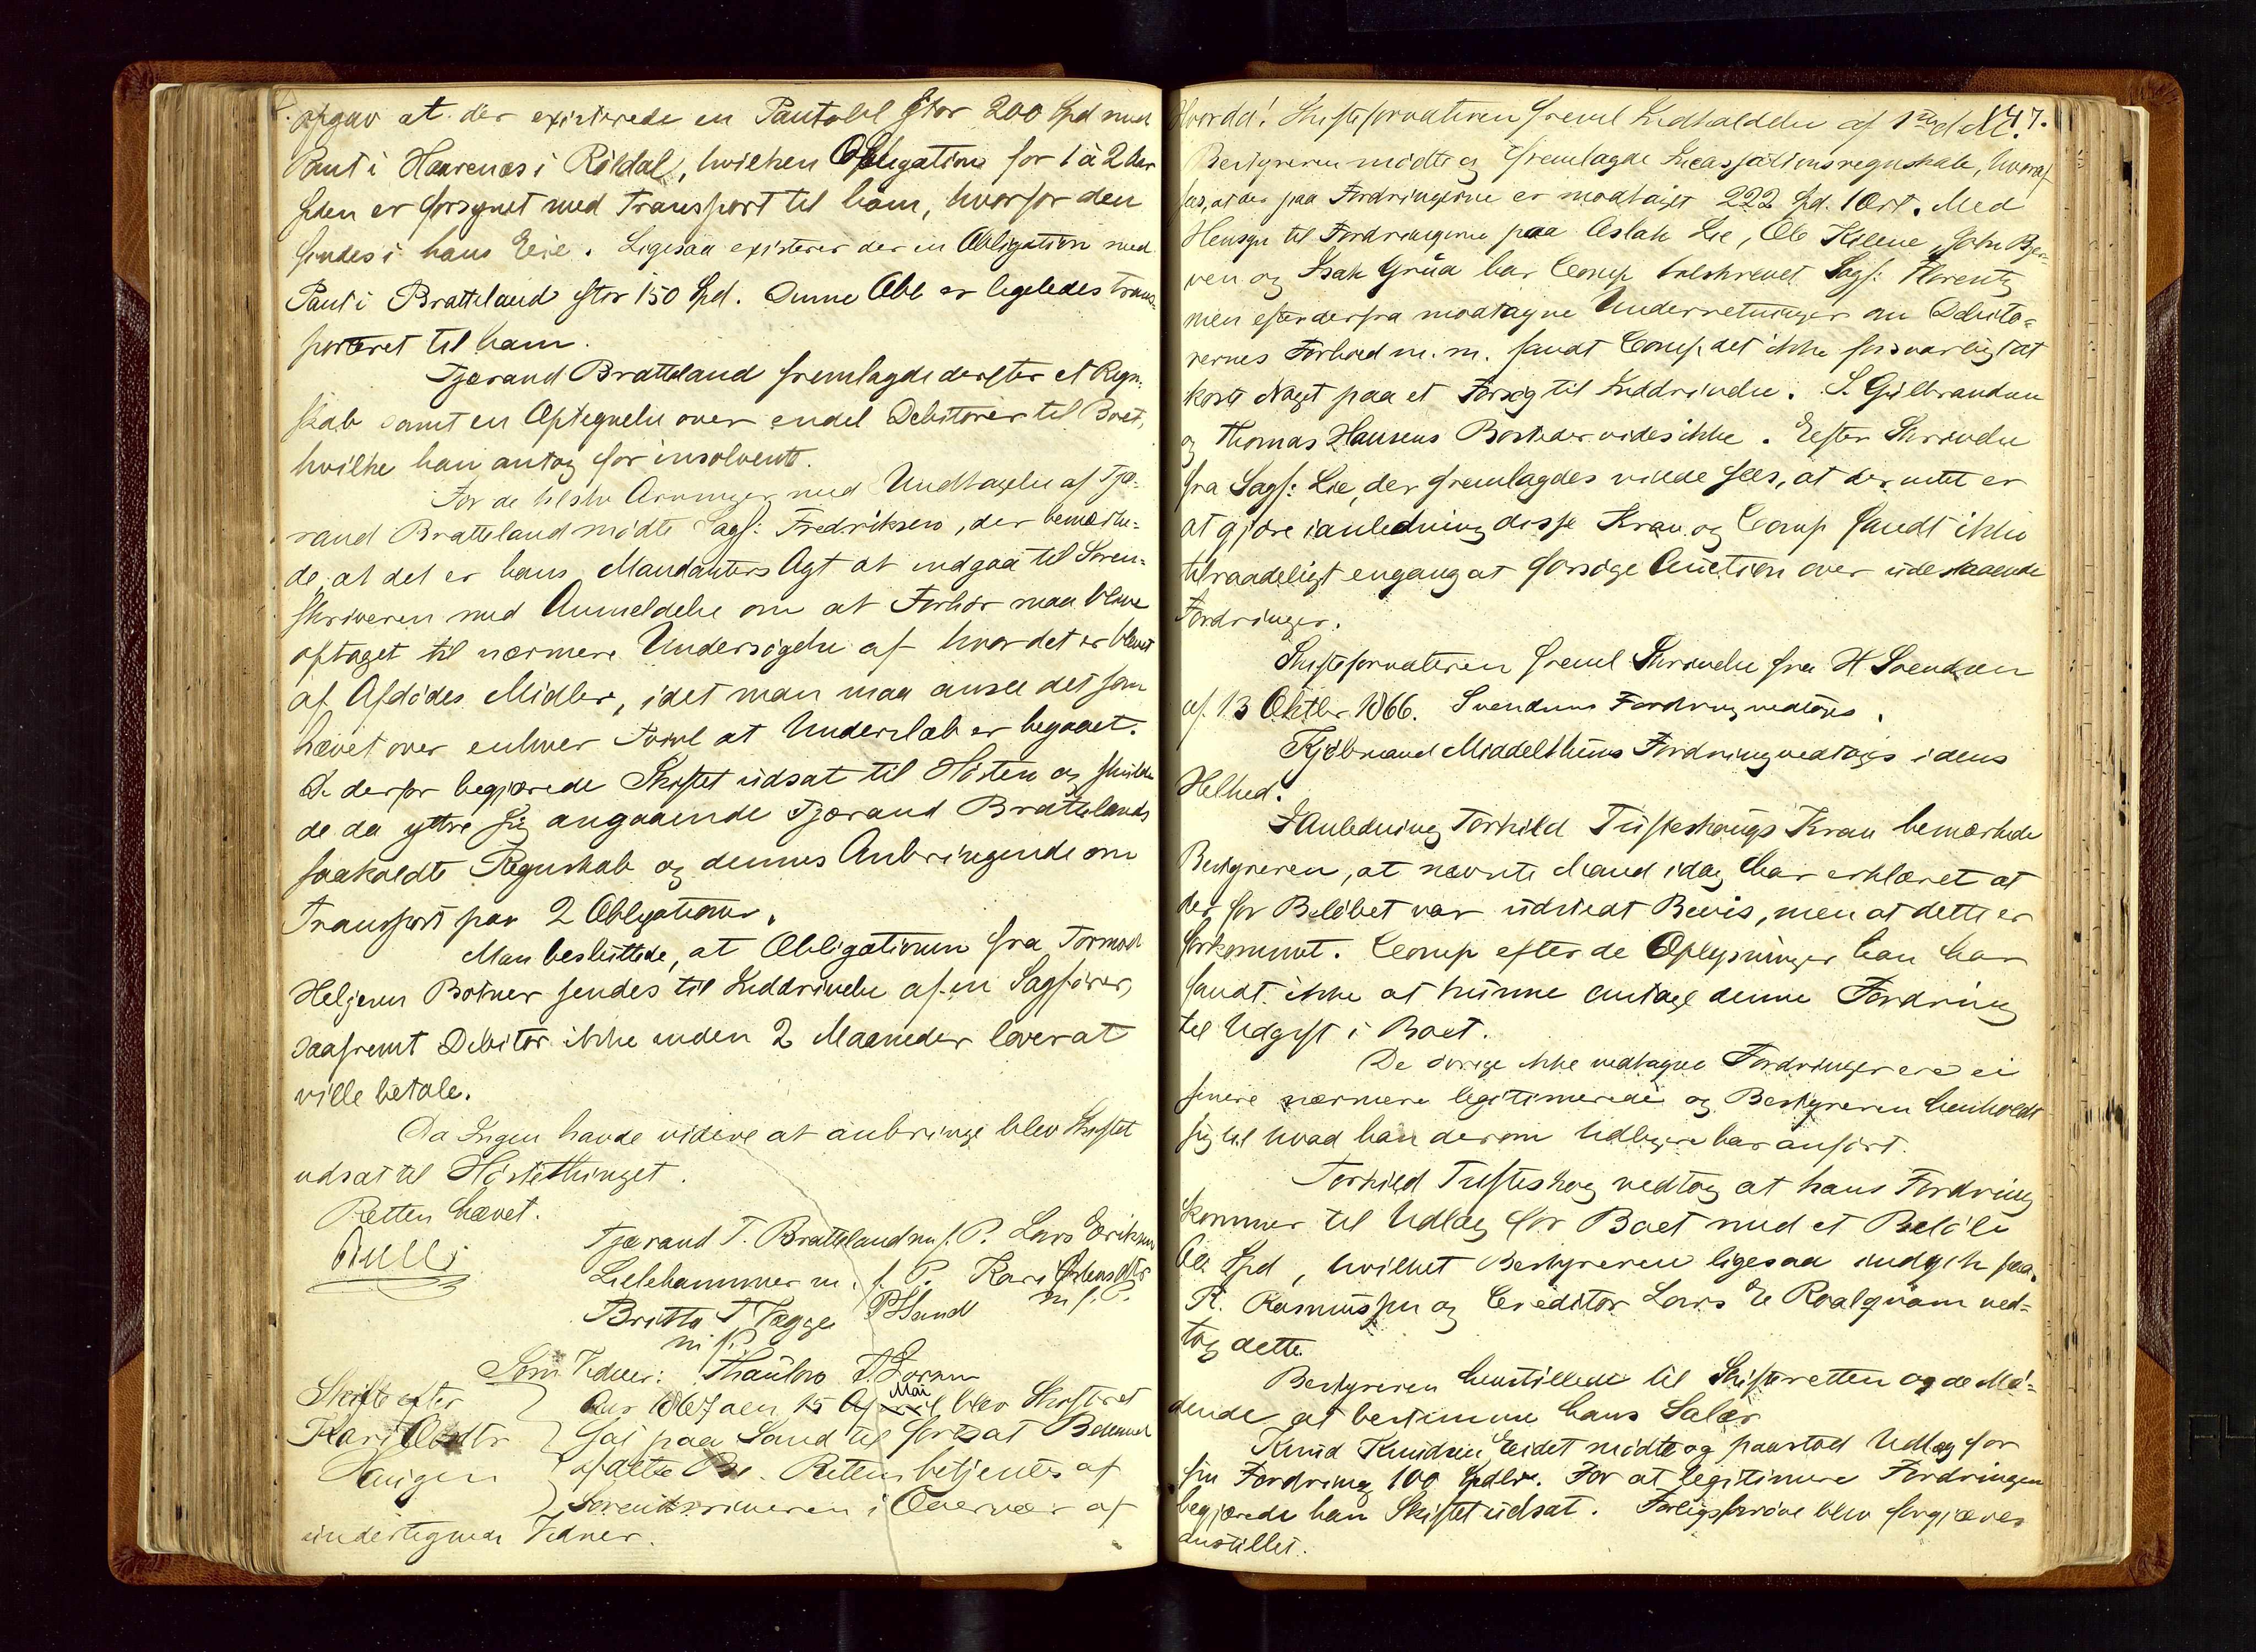 opgav at der existerede en Pantobl stor 200 Spd med
Pant i Haarenæs i Röldal, hvilken Obligation for 1 à 2 Aar
siden er forsynet med Transport til ham, hvorfor den
findes i hans Eie. Ligesaa existerer der en Obligation med
Pant i Bratteland stor 150 Spd. Denne Obl er ligeledes trans-
porteret til ham.
Tjærand Bratteland fremlagde derefter et Regn-
skab samt en Optegnelse over endel Debitorer til Boet,
hvilke han antog for insolvente.
For de tilstr Arvinger med Undtagelse af Tjæ-
rand Bratteland mödte Sagf: Fredriksen, der bemærke-
de, at det er hans Mandanters Agt at indgaa til Soren-
skriveren med Anmeldelse om at Forhör maa blive
optaget til nærmere Undersögelse af hvor det er blevet
af Afdödes Midler, idet man maa ansee det som
hævet over enhver Tvivl at Underslæb er begaaet.
De derfor begjærede Skiftet udsat til Hösten og skulde
de da yttre sig angaaende Tjærand Brattelands
saakaldte Regnskab og dennes Anbringende om
Transport paa 2 Obligationer.
Man besluttede, at Obligationen fra Tormod
Heljesen Botner sendes til Inddrivelse af en Sagförer,
saafremt Debitor ikke inden 2 Maaneder lover at
ville betale.
Da Ingen havde videre at anbringe blev Skiftet
udsat til Höstethinget.
Retten hævet.
Tjærand T. Bratteland m. f. P. Lars Eriksen
Lillehammer m. f. P. Kari Östensdtr
m f. P.
Britta T Vægge P Sand
m f. P.
Som Vidner: Thaulow T. Larsen
Skifte efter
Kari Olsdtr
Haugen
Aar 1867 den 15 April Mai blev Skifteret
sat paa Sand til fortsat Behand
af dette Bo. Retten betjentes af
Sorenskriveren i Overvær af
undertegnede Vidner.
147.
Hvorda! Skifteforvalteren freml Indkaldelse af 1ste d M.
Bestyreren mödte og fremlagde Incassationsregnskab, hvoraf
sees, at der paa Fordringerne er modtaget 222 Spd. 1 Ort. Med
Hensyn til Fordringerne paa Aslak Lie, Ole Kilene, John Bjer-
ven og Isak Grüa har Comp tilskrevet Sagf: Florentz
men efter derfra modtagne Underretninger om Debito-
rernes Forhold m. m. fandt Comp. det ikke forsvarligt at
koste Noget paa et Forsög til Inddrivelse. S. Gulbrandsen
og Thomas Hansens Bosteder vides ikke. Efter Skrivelse
fra Sagf: Lie, der fremlagdes vilde sees, at der intet er
at gjöre i anledning disse Krav og Comp fandt ikke
tilraadeligt engang at forsöge Auction over udestaaende
Fordringer.
Skifteforvalteren freml Skrivelse fra H Svendsen
af 13 Oktbr 1866. Svendsens Fordring vedtoges.
Kjöbmand Middelthuns Fordring vedtoges i dens
Helhed.
I Anledning Torkild Tufteskougs Krav bemærkede
Bestyreren, at nævnte Mand idag har erklæret at
der for Belöbet var udstedt Bevis, men at dette er
forkommet. Comp efter de Oplysninger han har
fandt ikke at kunne antage denne Fordring
til Udgift i Boet.
De övrige ikke vedtagne Fordringer ere ei
senere nærmere legitimerede og Bestyreren henholdt
sig til hvad han derom tidligere har anfört.
Torkild Tufteskog vedtog at hans Fordring
kommer til Udlæg for Boet med et Belöb
Spd, hvilket Bestyreren ligesaa indgik paa.
R. Rasmussen og Creditor Lars E Roalqvam ved-
tog dette.
Bestyreren henstillede til Skifteretten og de Mö-
dende at bestemme hans Salær
Knud Knudsen Eidet mödte og paastod Udlæg for
sin Fordring 100 Spdlr. For at legitimere Fordringen
begjærede han Skiftet udsat. Forligspröve blev forgjæves
anstillet.